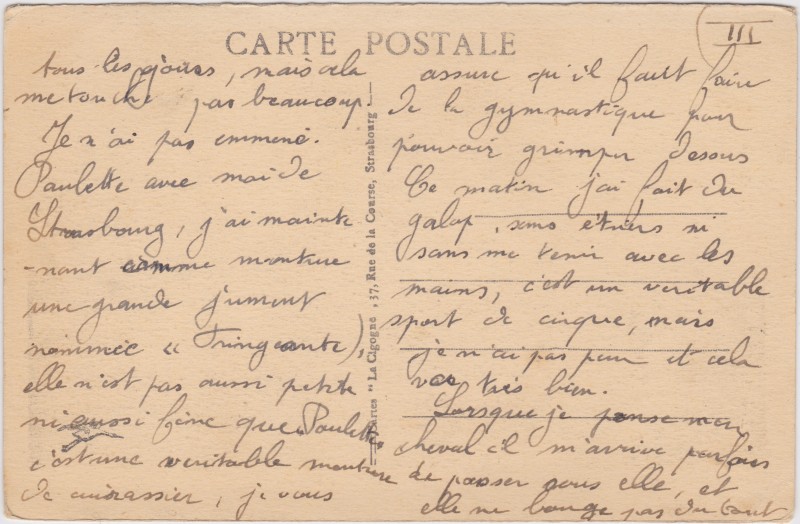 CARTE POSTALE
III
tous les jours, mais cela
me touche pas beaucoup.
Je n'ai pas emmené
Paulette avec moi de
Strasbourg, j'ai mainte
-nant comme monture
une grande jument
nommée « Fringante »,
elle n'est pas aussi petite
ni aussi fine que Paulette
c'est une veritable monture
de cuirassier, je vous
"La Cigogne", 37, Rue de la Course, Strasbourg
assure qu'il faut faire
de la gymnastique pour
pouvoir grimper dessus
Ce matin j'ai fait du
galop, sans étriers ni
sans me tenir avec les
mains, c'est un veritable
sport de cirque, mais
je n'ai pas peur et cela
va très bien.
Lorsque je panse mon
cheval il m'arrive parfois
de passer sous elle, et
elle ne bouge pas du tout